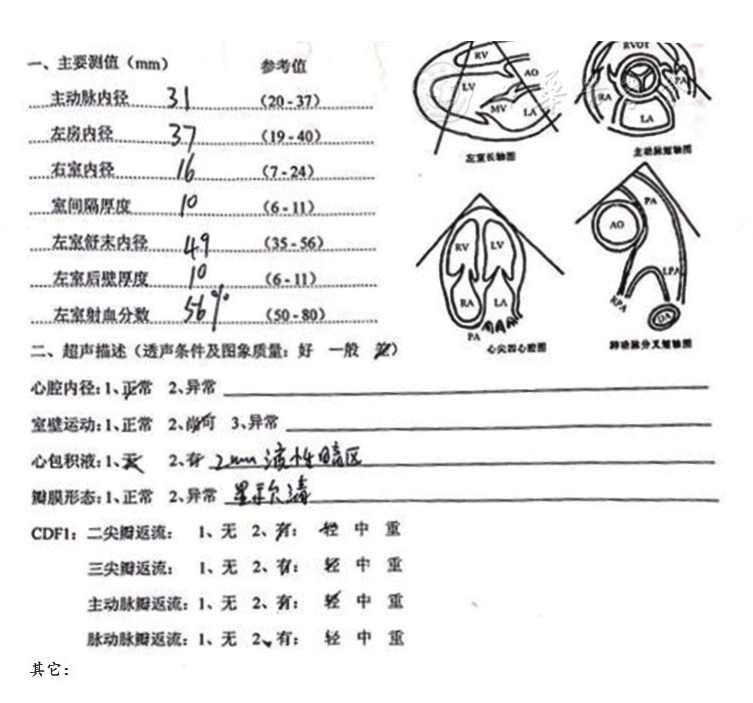 一、主要测值（mm） 参考值
主动脉内径 31 （20-37）
左房内径 37 （19-40）
右室内径 16 （7-24）
室间隔厚度 10 （6-11）
左室舒末内径 49 （35-56）
左室后壁厚度 10 （6-11）
左室射血分数 56% （50-80）
RV
AO
LV
MV
LA
左室长轴图
RVOT
RA
PA
LA
主动脉短轴图
RV
LV
RA
LA
PA
心尖四心腔图
PA
AO
LPA
RPA
DA
肺动脉分叉短轴图
二、超声描述（透声条件及图象质量：好 一般 差）
心腔内径：1、正常 2、异常
室壁运动：1、正常 2、尚可 3、异常
心包积液：1、无 2、有 2mm 液性暗区
瓣膜形态：1、正常 2、异常 显示欠清
CDF1：二尖瓣返流： 1、无 2、有： 轻 中 重
三尖瓣返流： 1、无 2、有： 轻 中 重
主动脉瓣返流：1、无 2、有： 轻 中 重
脉动脉瓣返流：1、无 2、有： 轻 中 重
其它：